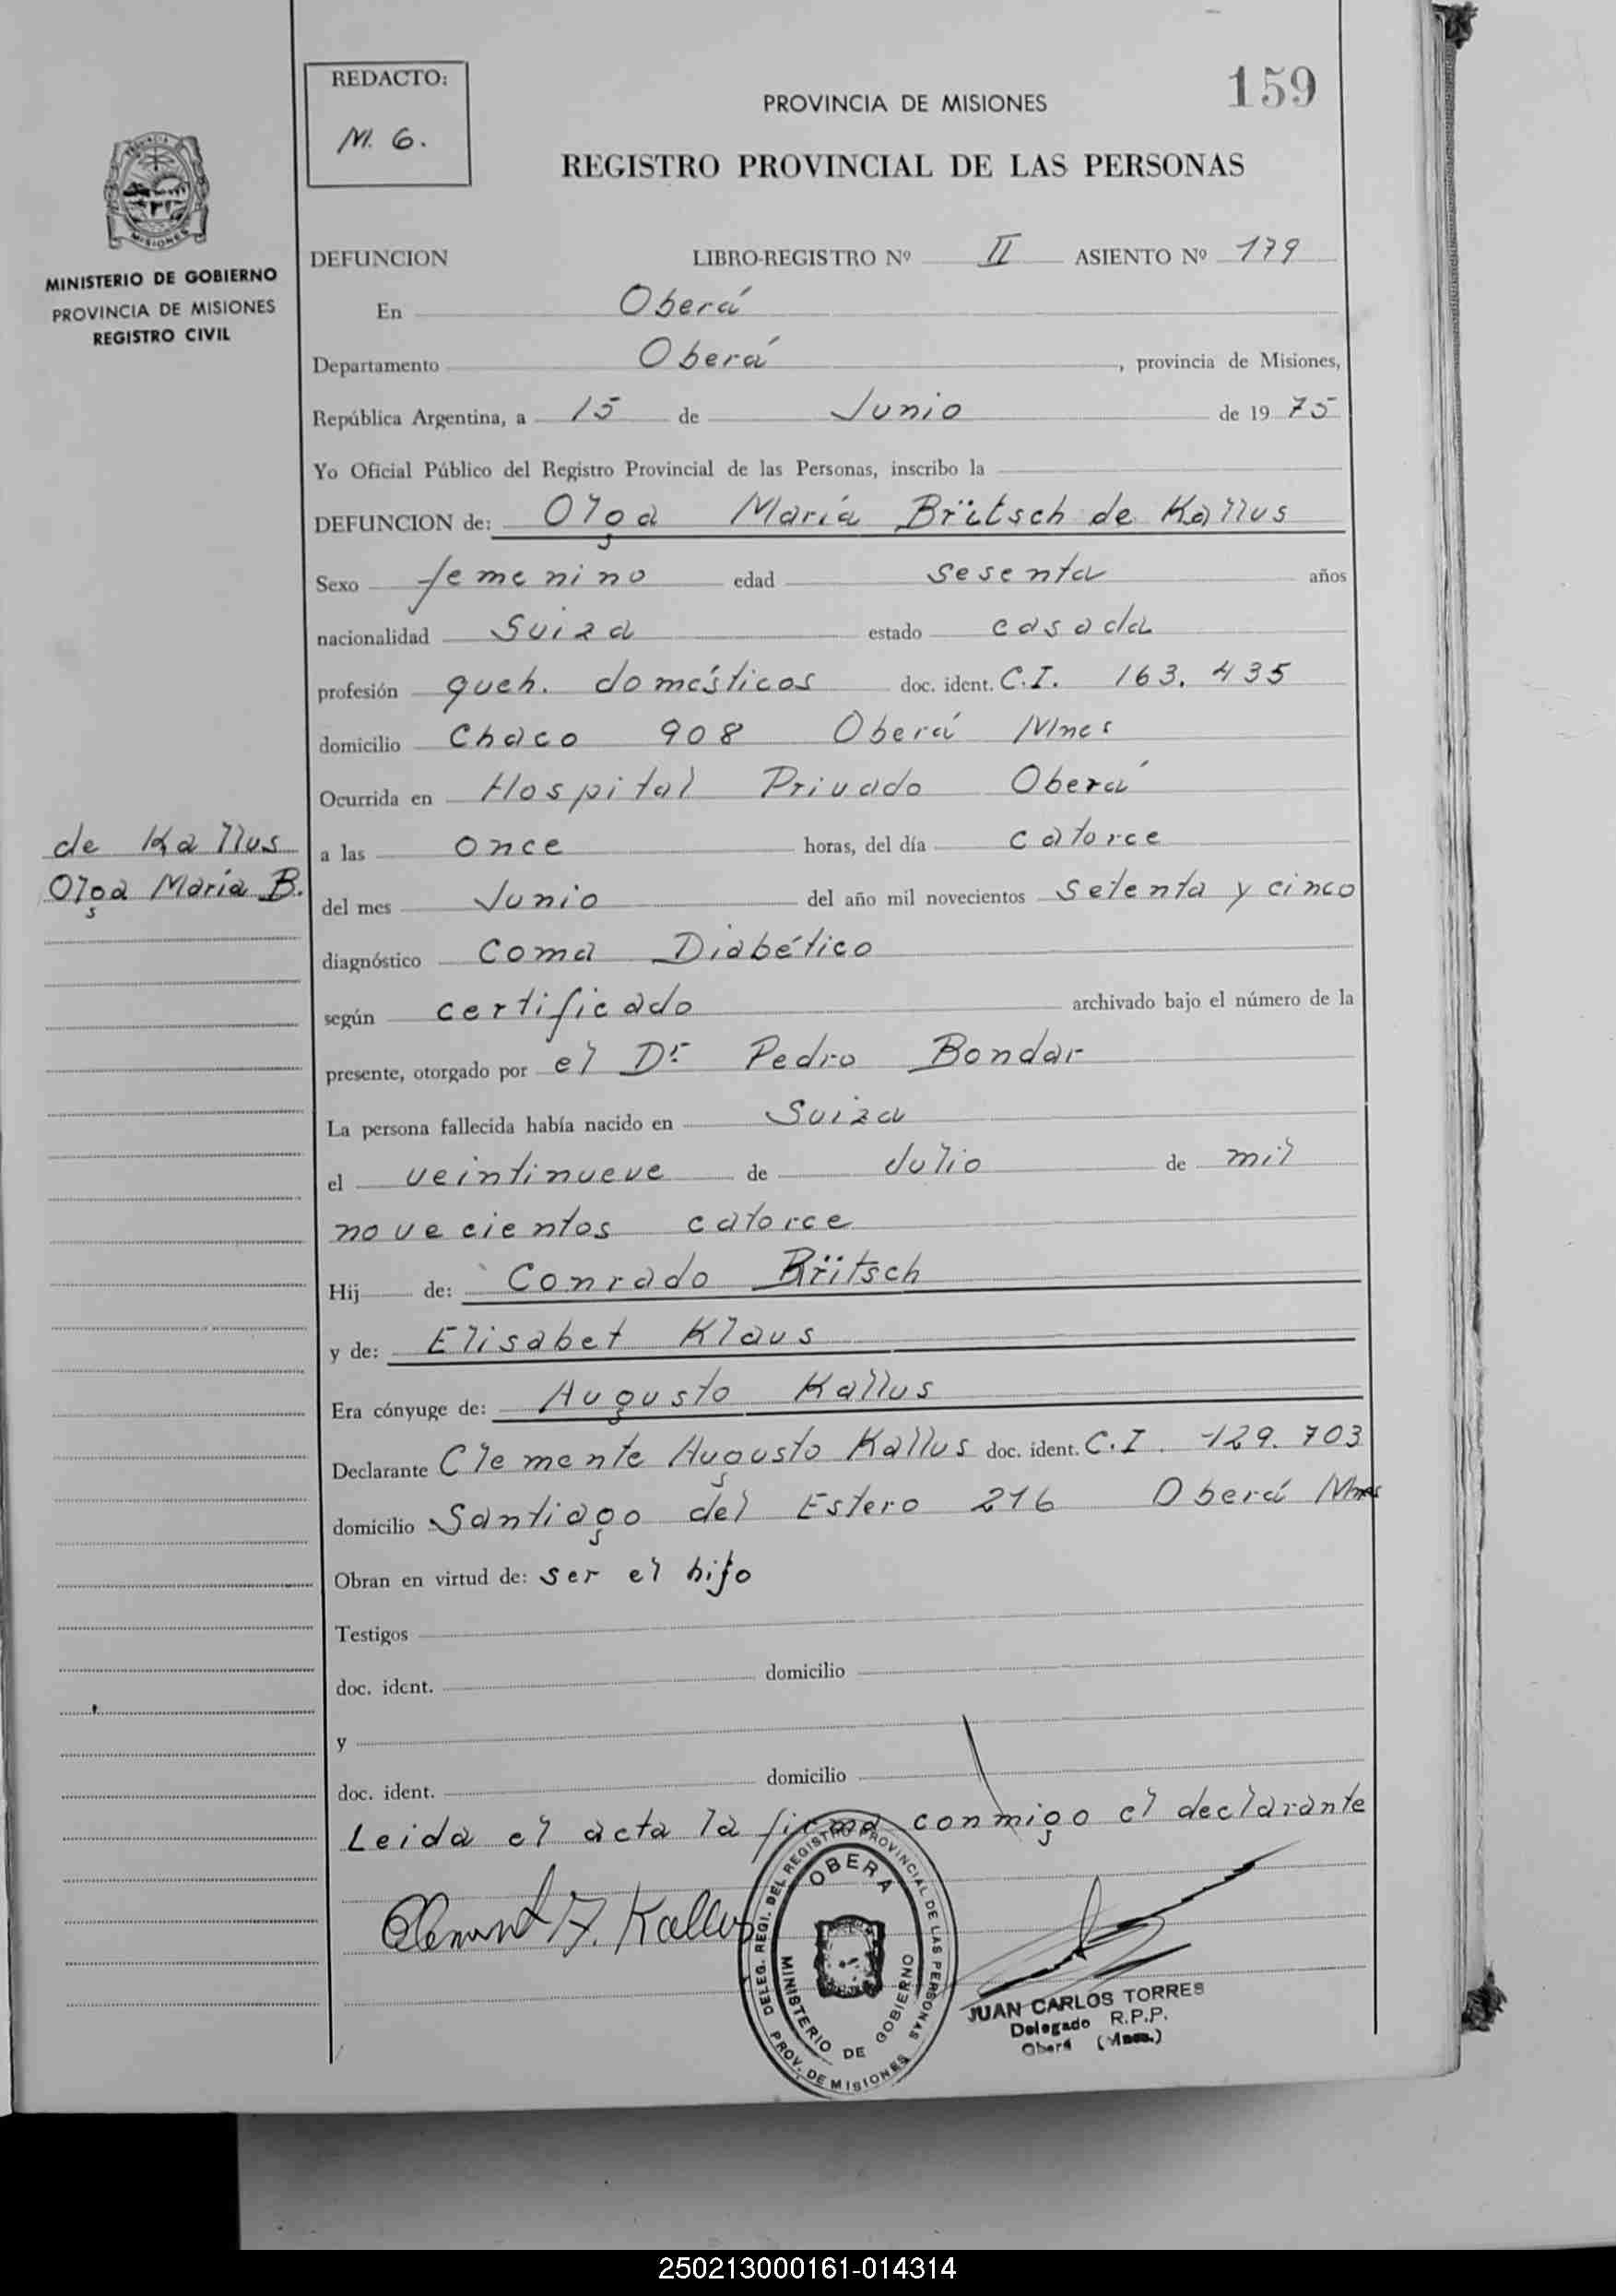 REDACTO:
M. G.
159
PROVINCIA DE MISIONES
REGISTRO PROVINCIAL DE LAS PERSONAS
MISIONES
MINISTERIO DE GOBIERNO
PROVINCIA DE MISIONES
REGISTRO CIVIL
DEFUNCION LIBRO-REGISTRO Nº II ASIENTO Nº 179
En Oberá
Departamento Oberá, provincia de Misiones,
República Argentina, a 15 de Junio de 19 75
Yo Oficial Público del Registro Provincial de las Personas, inscribo la
DEFUNCION de: Olga María Brïtsch de Kallus
Sexo femenino edad sesenta años
nacionalidad Suiza estado casada
profesión queh. domésticos doc. ident. C.I. 163.435
domicilio Chaco 908 Oberá Mnes
Ocurrida en Hospital Privado Oberá
de Kallus
Olga María B.
a las once horas, del día catorce
del mes Junio del año mil novecientos setenta y cinco
diagnóstico Coma Diabético
según certificado archivado bajo el número de la
presente, otorgado por el Dr Pedro Bondar
La persona fallecida había nacido en Suiza
el veintinueve de Julio de mil
novecientos catorce
Hij de: Conrado Brïtsch
y de: Elisabet Klaus
Era cónyuge de: Augusto Kallus
Declarante Clemente Augusto Kallus doc. ident. C.I. 129.703
domicilio Santiago del Estero 216 Oberá Mnes
Obran en virtud de: ser el hijo
Testigos
doc. ident. domicilio
y
doc. ident. domicilio
Leida el acta la firma conmigo el declarante
Clement A. Kallus
DELEG. REGI. DEL REGISTRO PROVINCIAL DE LAS PERSONAS
OBERA
MINISTERIO DE GOBIERNO
PROV. DE MISIONES
JUAN CARLOS TORRES
Delegado R.P.P.
Oberá (Mnes.)
250213000161-014314